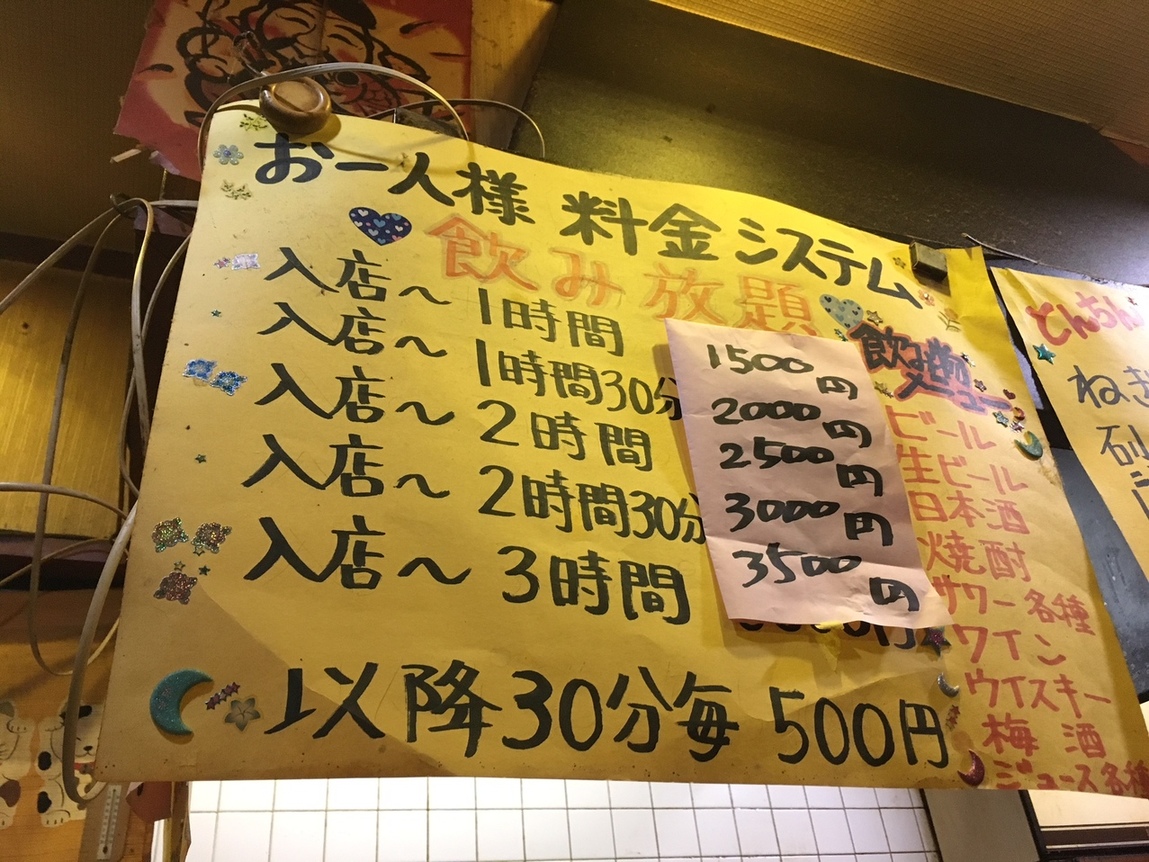 お一人様 料金システム
飲み放題
入店～1時間 1500円
入店～1時間30分 2000円
入店～2時間 2500円
入店～2時間30分 3000円
入店～3時間 3500円
以降30分毎 500円
飲み物
メニュー
ビール
生ビール
日本酒
焼酎
サワー各種
ワイン
ウイスキー
梅酒
ジュース各種
とんちん
ねぎ
砂